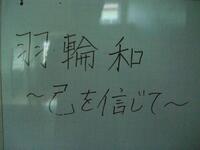 羽輪和
～己を信じて～